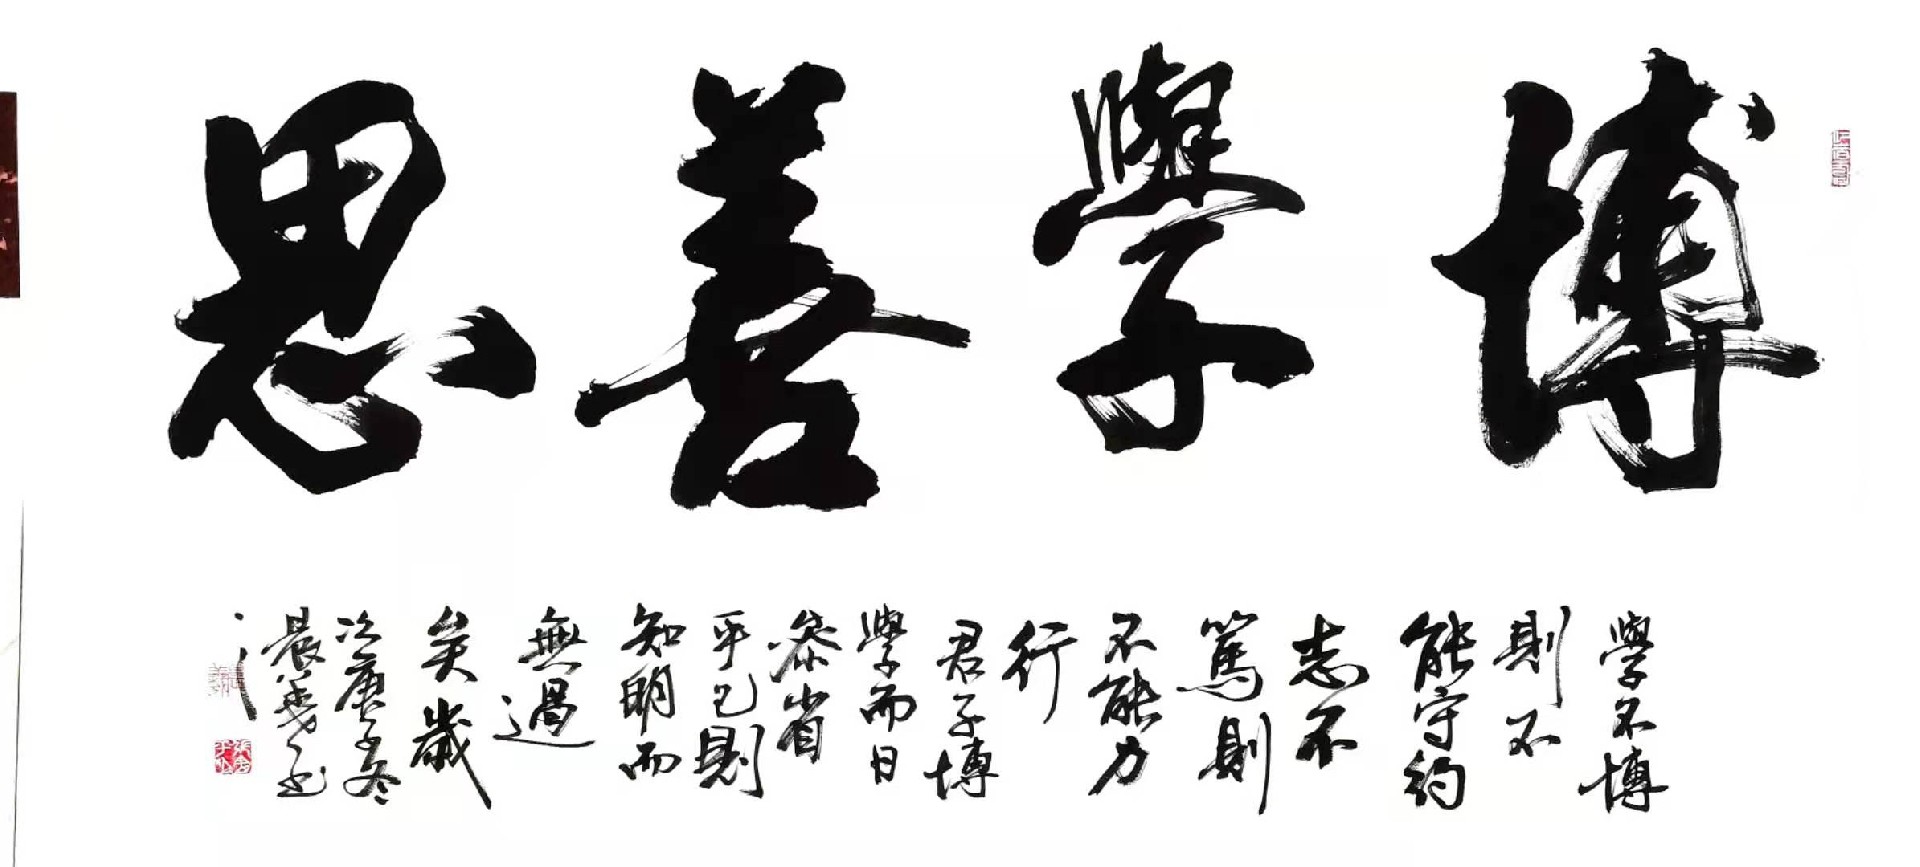 博學善思
學不博
則不
能守約
志不
篤則
不能力
行
君子博
學而日
參省
乎己則
知明而
無過
矣歲
次庚子冬
晨